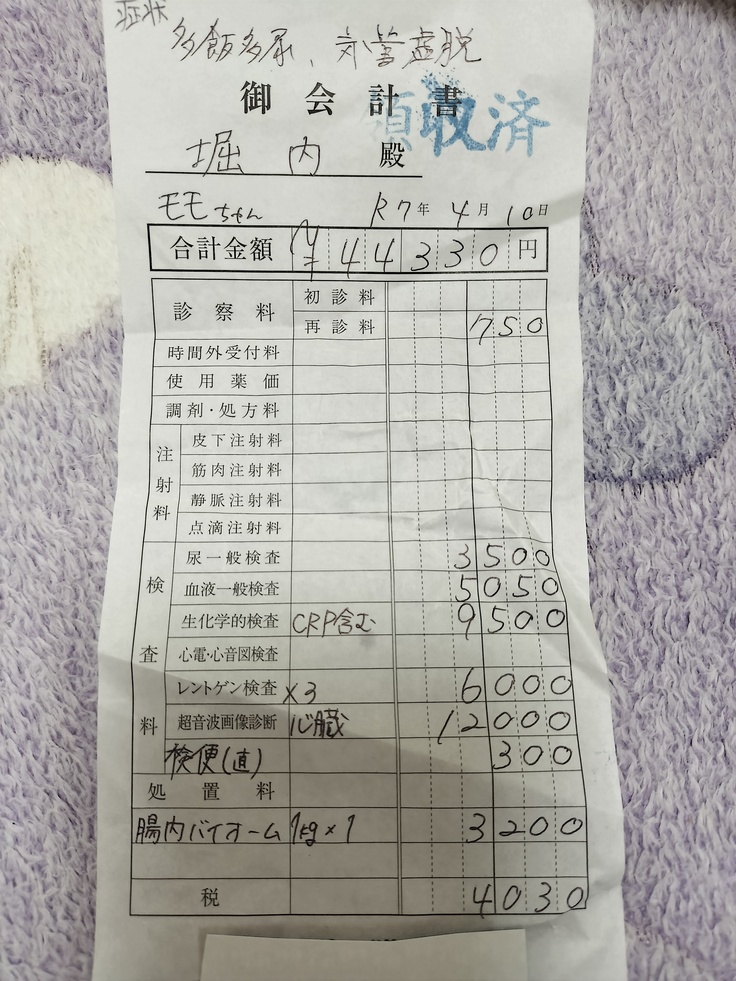 症状
多飯多尿、気管虚脱
御会計書
領収済
堀内 殿
モモちゃん R7年 4月 10日
合計金額 ¥44330円
診察料 初診料
再診料 750
時間外受付料
使用薬価
調剤・処方料
注射料 皮下注射料
筋肉注射料
静脈注射料
点滴注射料
検査料 尿一般検査 3500
血液一般検査 5050
生化学的検査 CRP含む 9500
心電・心音図検査
レントゲン検査 ×3 6000
超音波画像診断 心臓 12000
検便(直) 300
処置料
腸内バイオーム 1kg×1 3200
税 4030